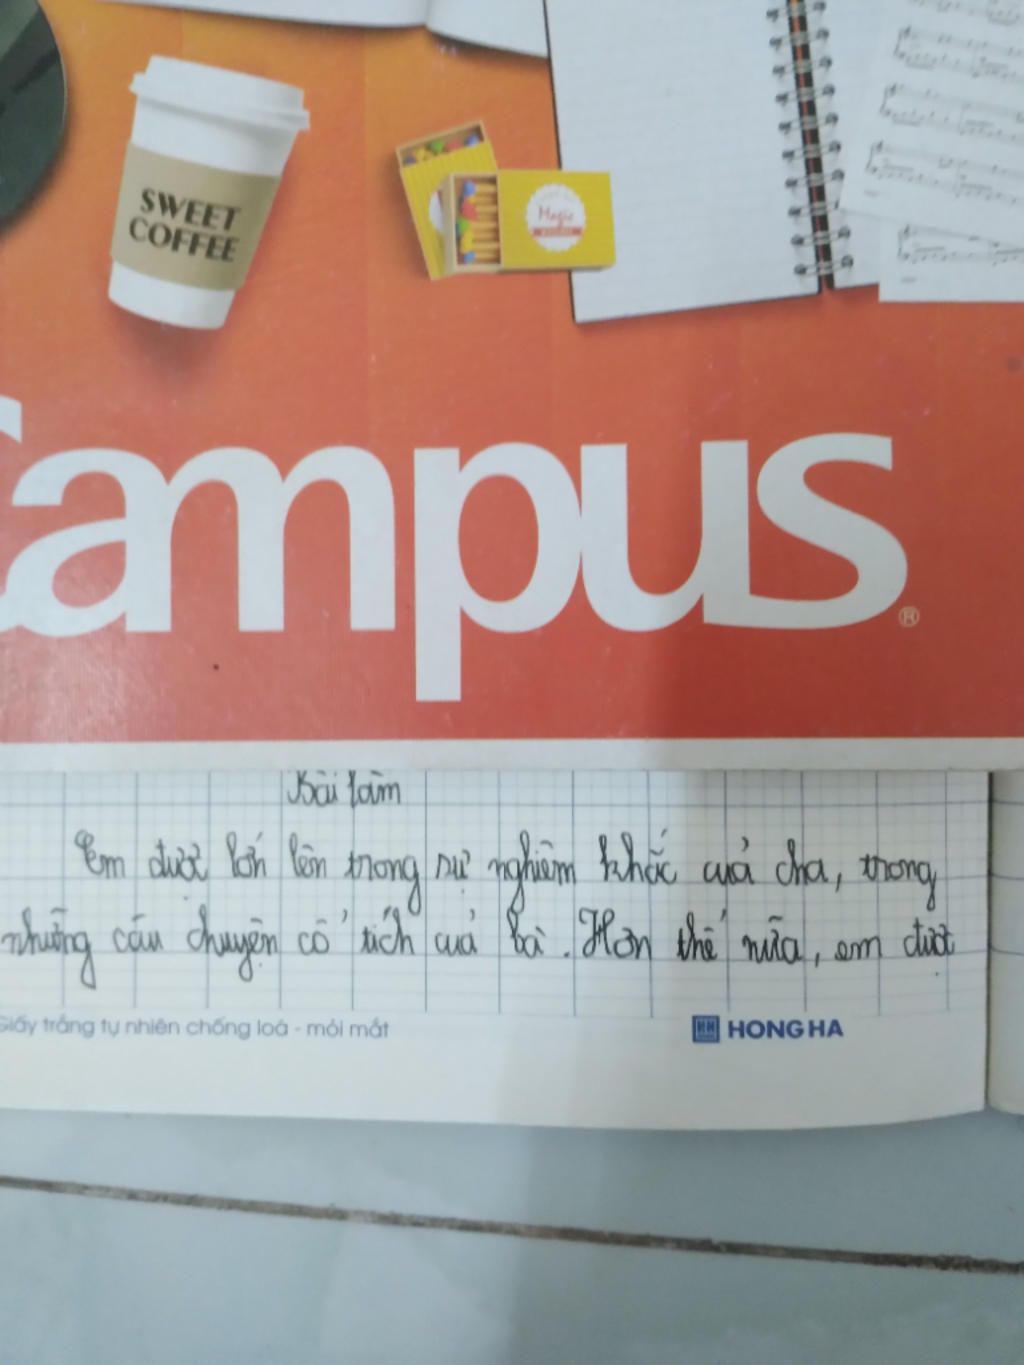 SWEET
COFFEE
Magic
Campus®
Bài làm
Em được lớn lên trong sự nghiêm khắc của cha, trong
những câu chuyện cổ tích của bà. Hơn thế nữa, em được
Giấy trắng tự nhiên chống loá - mỏi mắt
HONG HA